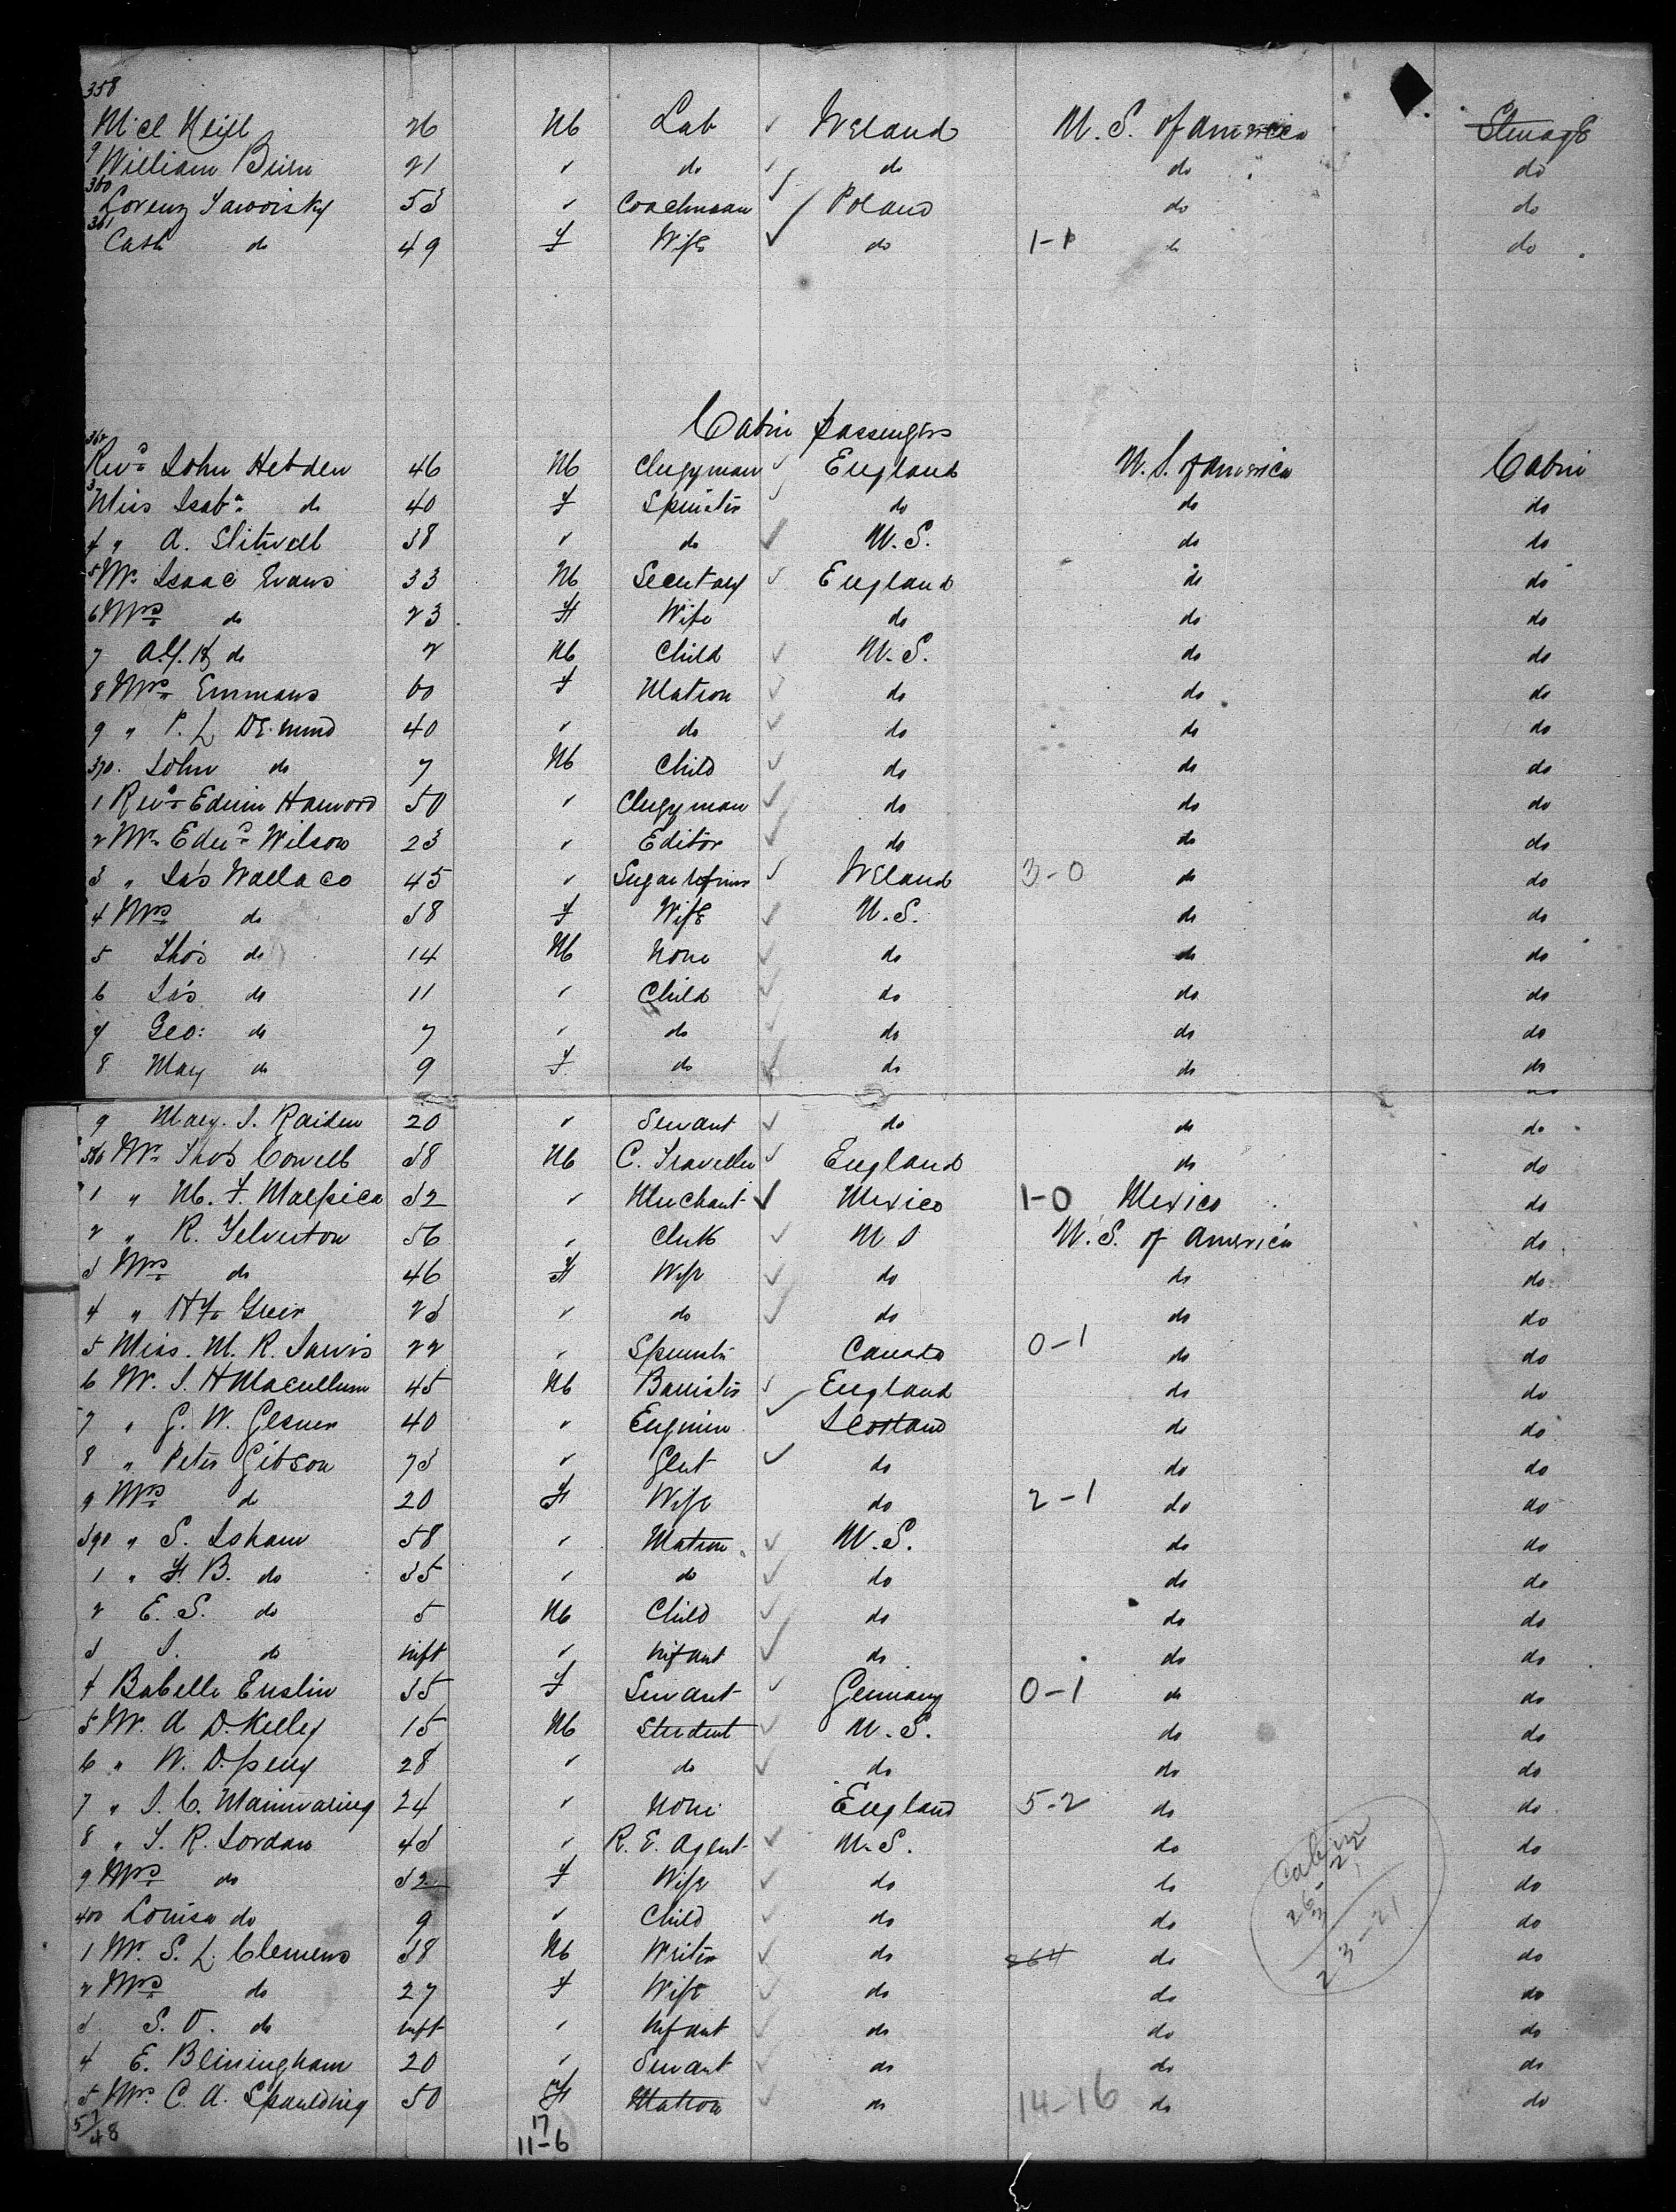 358
Mcl Neill 26 M Lab Ireland U. S. of America Steerage
9 William Birn 21 " do do do do
360 Lorenz Jaworsky 53 " Coachman Poland do do
361 Cath do 49 F Wife do 1-1 do do
Cabin Passengers
362 Revd John Hebden 46 M Clergyman England U. S. of America Cabin
3 Miss Isaba do 40 F Spinster do do do
4 " A. Stilwell 38 " do U. S. do do
5 Mr Isaac Evans 33 M Secretary England do do
6 Mrs do 23 F Wife do do do
7 do 2 M Child U. S. do do
8 Mrs Emmans 60 F Matron do do do
9 " P. L DEmund 40 " do do do do
370. John do 7 M Child do do do
1 Revd Edwin Harwood 50 " Clergyman do do do
2 Mr Edwd Wilson 23 " Editor do do do
3 " Jas Wallace 45 " Sugar refiner Ireland 3-0 do do
4 Mrs do 38 F Wife U. S. do do
5 Thos do 14 M None do do do
6 Jas do 11 " Child do do do
7 Geo: do 7 " do do do do
8 Mary do 9 F do do do do
9 Mary. J. Raiden 20 " Servant do do do
380 Mr Thos Cowell 38 M C. Traveller England do do
1 " M. F. Malpica 32 " Merchant Mexico 1-0 Mexico do
2 " R. Yelverton 56 " Clerk U S U. S. of America do
3 Mrs do 46 F Wife do do do
4 " Greer 23 " do do do do
5 Miss. M. R. Jarvis 22 " Spinster Canada 0-1 do do
6 Mr. J. H Macullum 45 M Barrister England do do
7 " G. W. Gesner 40 " Engineer Scotland do do
8 " Peter Gibson 73 " Gent do do do
9 Mrs do 20 F Wife do 2-1 do do
390 " S. Isham 58 " Matron U. S. do do
1 " F. B. do 35 " do do do do
2 E. S. do 5 M Child do do do
3 J. do inft " infant do do do
4 Babelle Enslin 35 F Servant Germany 0-1 do do
5 Mr. A D Kelley 15 M Student U. S. do do
6 " W. 28 " do do do do
7 " J. C. Mainwaring 24 " None England 5-2 do do
8 " J. R. Jordan 43 " R. E. Agent U. S. do do
9 Mrs do 32 F Wife do do do
400 Louisa do 9 " Child do do do
1 Mr. S. L. Clemens 38 M Writer do 264 do do
2 Mrs do 27 F Wife do do do
3 S. O. do inft " Infant do do do
4 E. Bliningham 20 " Servant do do do
5 Mrs C. A. Spaulding 50 F Matron do 14-16 do do
57/48 17
11-6
Cabin
23-21